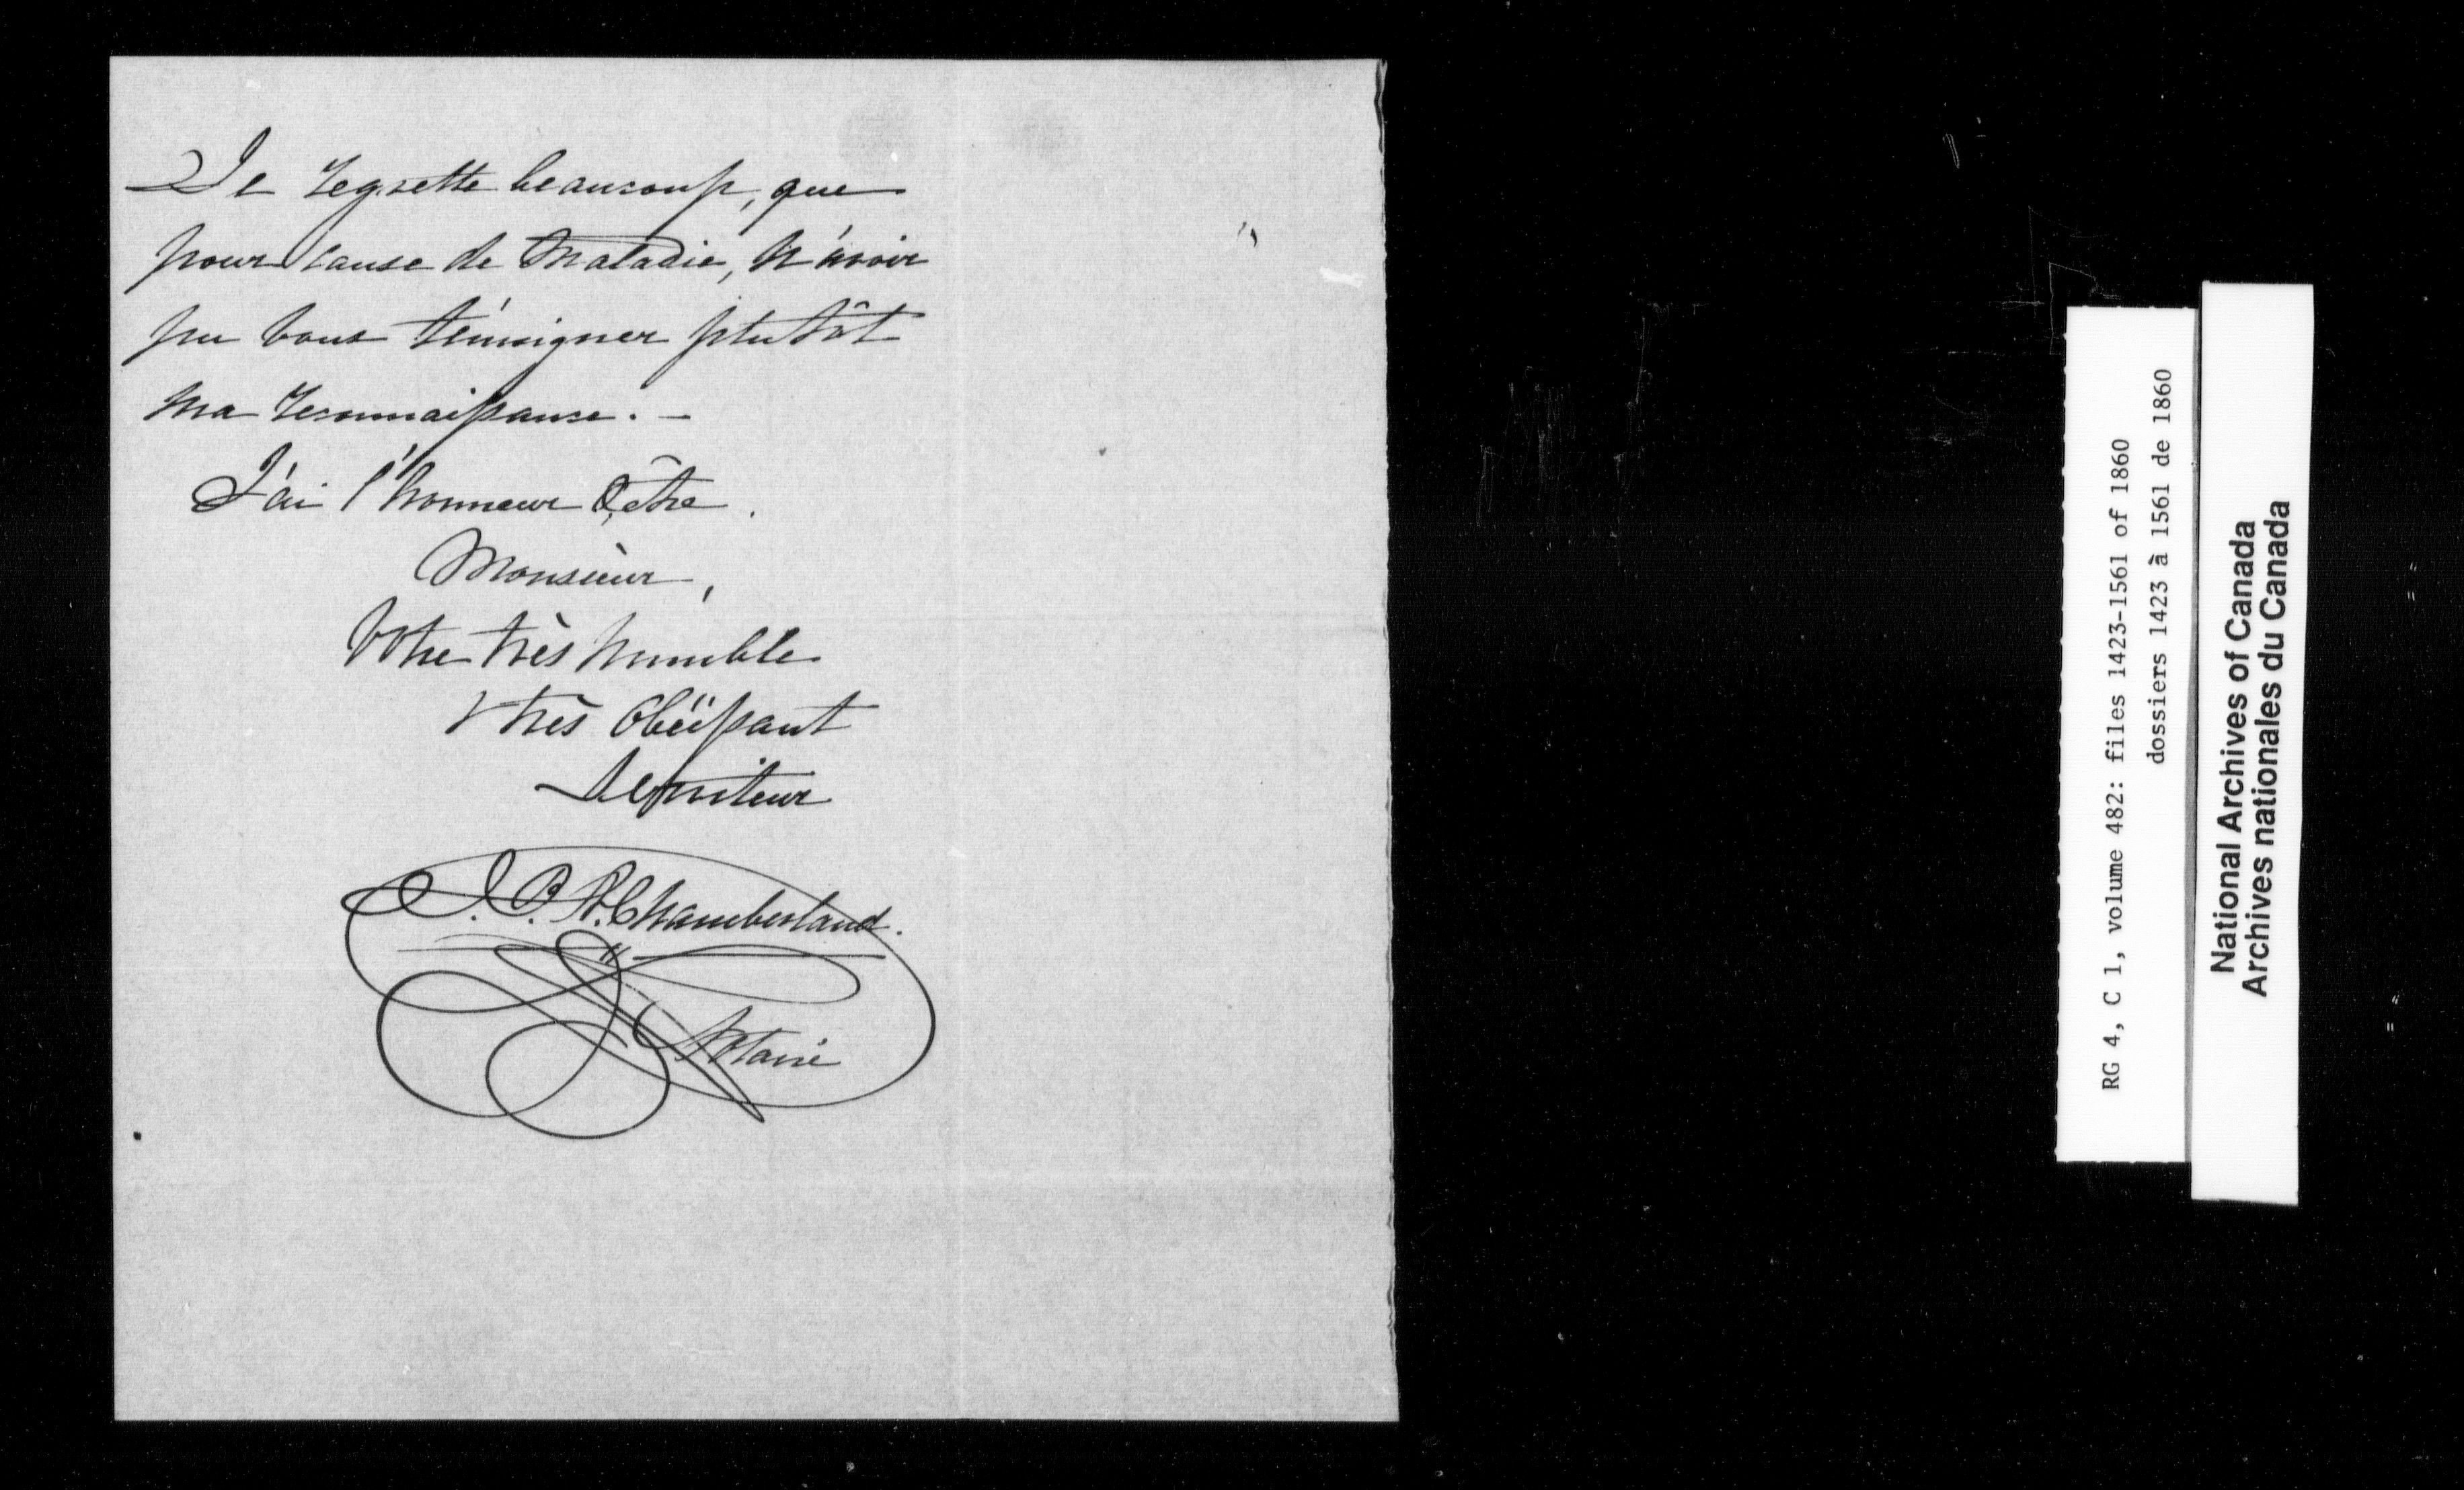 Je regrette beaucoup, que
pour cause de Maladie, N'avoir
pu vous témoigner plutôt
ma reconnaissance. —
J'ai l'honneur d'être.
Monsieur,
Votre très humble
& très Obéïssant
Serviteur
J. B. A. Chamberland.
Notaire
RG 4, C 1, volume 482: files 1423-1561 of 1860
dossiers 1423 à 1561 de 1860
National Archives of Canada
Archives nationales du Canada